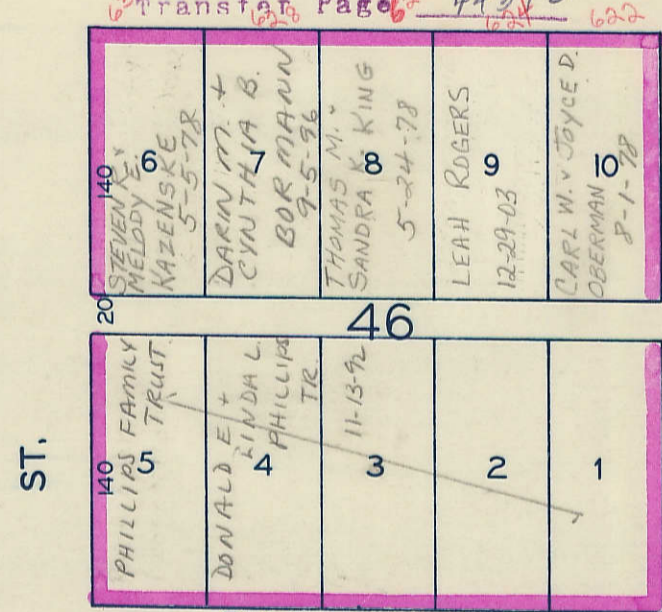 Transfer Page
628 624 622
140
STEVEN R. &
MELODY E.
KAZENSKE
5-5-78
6
DARIN M. +
CYNTHIA B.
BORMANN
9-5-96
7
THOMAS M. &
SANDRA K. KING
5-24-78
8
LEAH ROGERS
12-29-03
9
CARL W. & JOYCE D.
OBERMAN
8-1-78
10
20
46
ST.
140
PHILLIPS FAMILY
TRUST
5
DONALD E +
LINDA L.
PHILLIPS
TR.
4
11-13-92
3
2
1